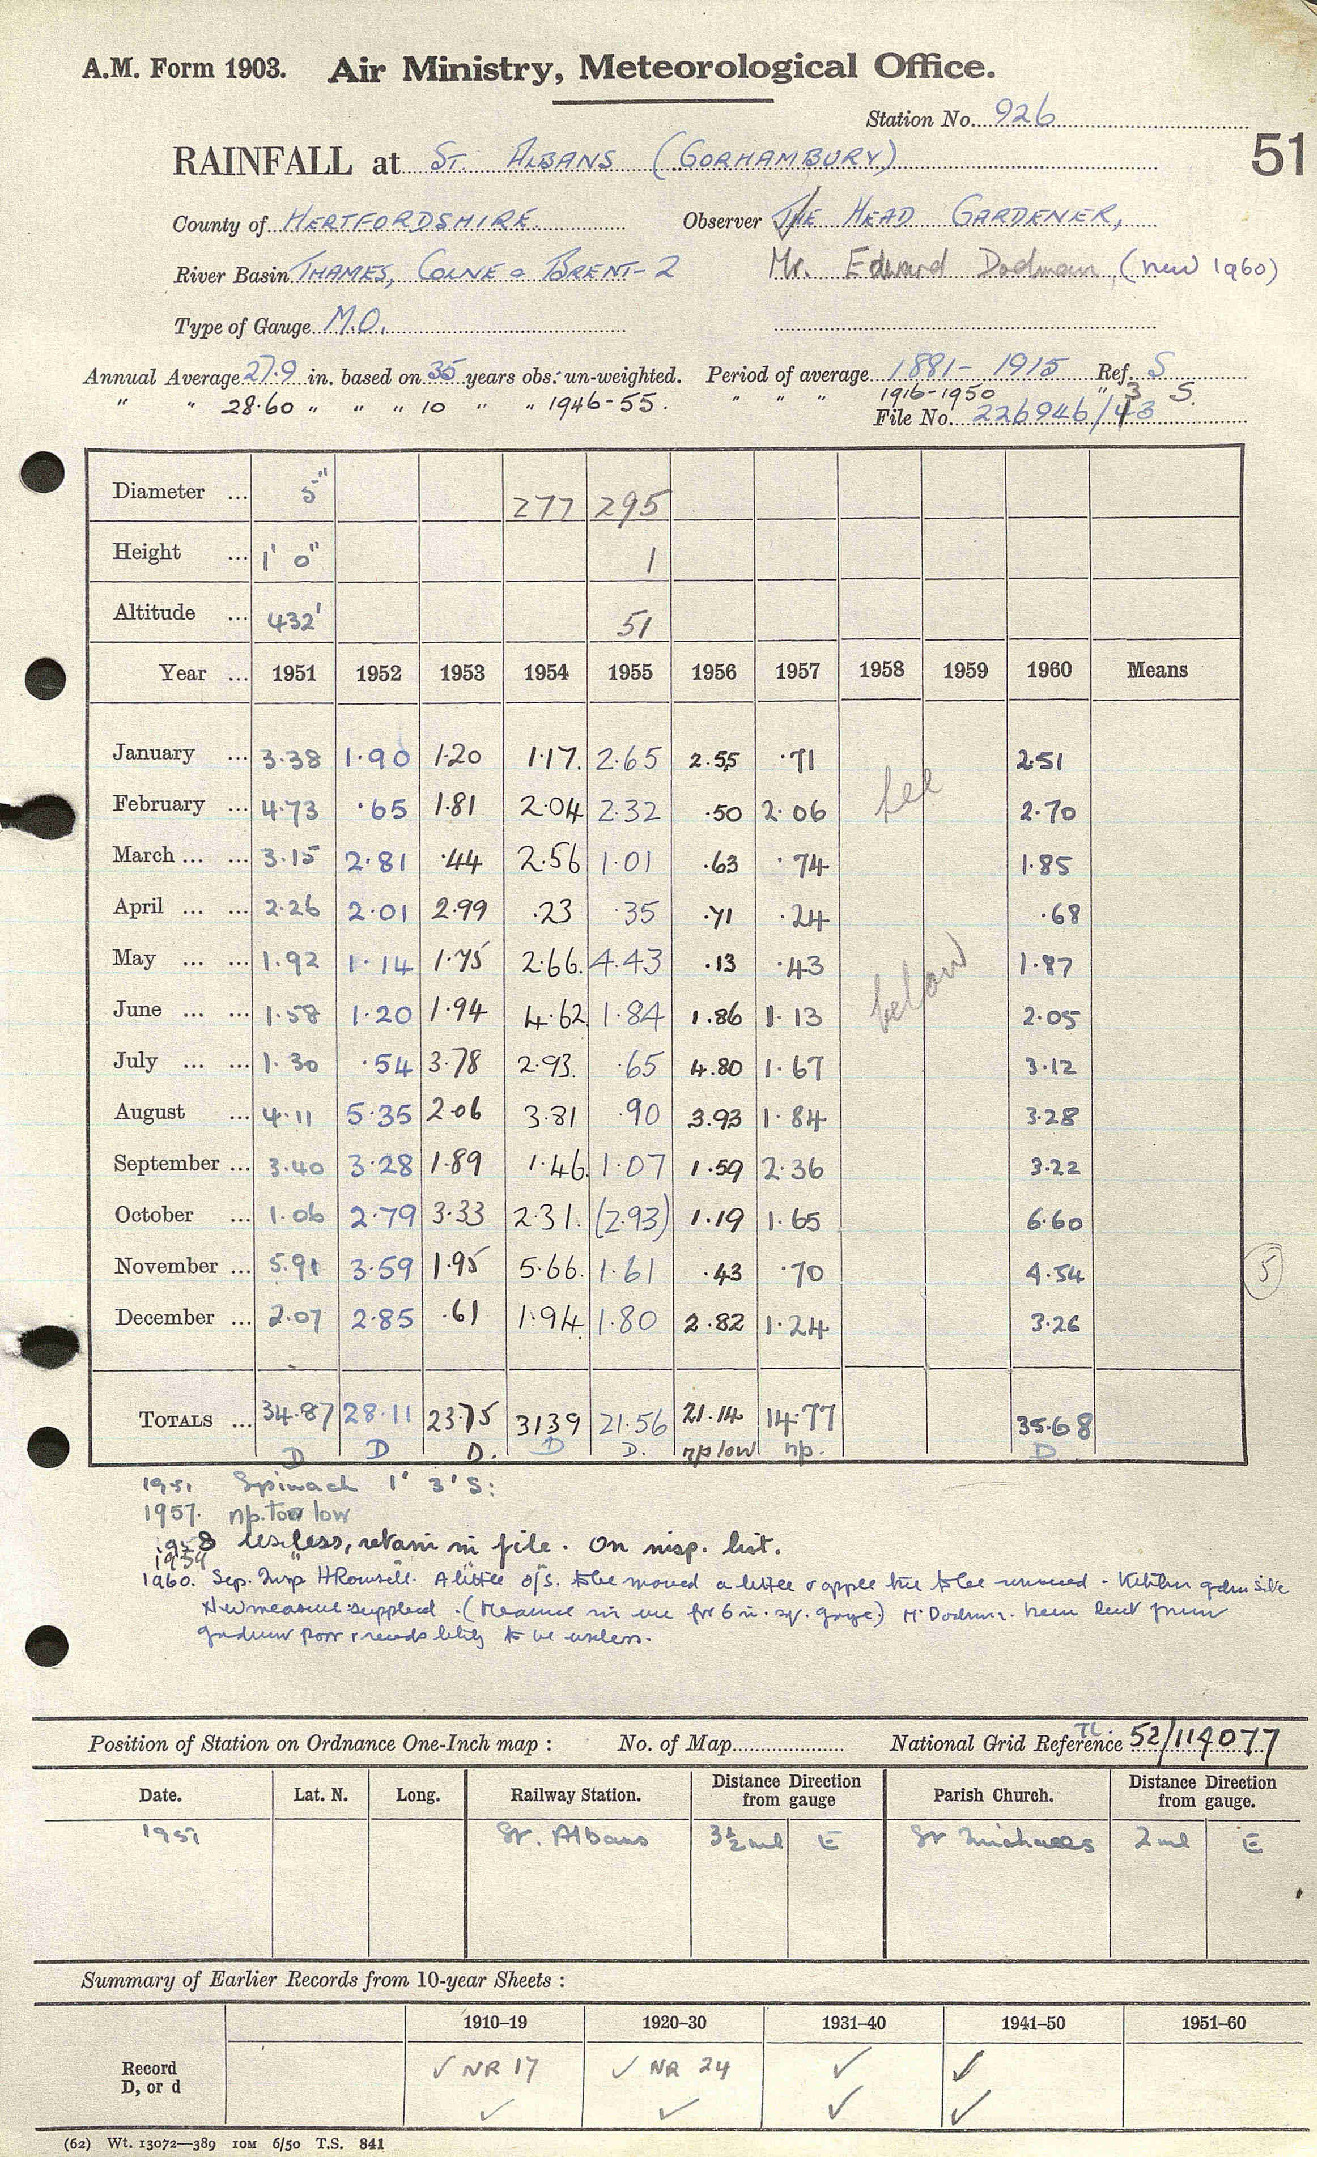 A.M. Form 1903. Air Ministry, Meteorological Office.
Station No. 926
51
RAINFALL at ST. ALBANS (GORHAMBURY)
County of HERTFORDSHIRE. Observer THE HEAD GARDENER,
River Basin THAMES, COLNE & BRENT-2 Mr. Edward Dodman (new 1960)
Type of Gauge M.O.
Annual Average 27.9 in. based on 35 years obs. un-weighted. Period of average 1881-1915 Ref. S
" " 28.60 " " " 10 " " 1946-55. " " " 1916-1950 " S.
File No. 226946/43
Diameter ... 5" 277 295
Height ... 1' 0" 1
Altitude ... 432' 51
Year ... 1951 1952 1953 1954 1955 1956 1957 1958 1959 1960 Means
January ... 3.38 1.90 1.20 1.17 2.65 2.55 .71 2.51
February ... 4.73 .65 1.81 2.04 2.32 .50 2.06 see 2.70
March ... ... 3.15 2.81 .44 2.56 1.01 .63 .74 1.85
April ... ... 2.26 2.01 2.99 .23 .35 .71 .24 .68
May ... ... 1.92 1.14 1.75 2.66 4.43 .13 .43 below 1.87
June ... ... 1.58 1.20 1.94 4.62 1.84 1.86 1.13 2.05
July ... ... 1.30 .54 3.78 2.93 .65 4.80 1.67 3.12
August ... 4.11 5.35 2.06 3.81 .90 3.93 1.84 3.28
September ... 3.40 3.28 1.89 1.46 1.07 1.59 2.36 3.22
October ... 1.06 2.79 3.33 2.31 (2.93) 1.19 1.65 6.60
November ... 5.91 3.59 1.95 5.66 1.61 .43 .70 4.54 5
December ... 2.07 2.85 .61 1.94 1.80 2.82 1.24 3.26
TOTALS ... 34.87 28.11 23.75 3139 21.56 21.14 14.77 35.68
D D D. D D. np low np. D
1951 Spinach 1' 3'S:
1957. np. too low
1958 useless, retain in file. On insp. list.
1959 "
1960. Sep. Insp H Rowsell. A little o/s. to be moved a little & apple tree to be removed - Kitchen gdn site
New measure supplied. (Measure in use for 6 in. gauge) Mr Dodman.
to be useless.
Position of Station on Ordnance One-Inch map : No. of Map National Grid Reference TL. 52/114077
Date. Lat. N. Long. Railway Station. Distance Direction from gauge Parish Church. Distance Direction from gauge.
1951 St. Albans 3½ ml E St Michaels 2 ml E
Summary of Earlier Records from 10-year Sheets :
1910–19 1920–30 1931–40 1941–50 1951–60
Record ✓ NR 17 ✓ NR 24 ✓ ✓
D, or d ✓ ✓ ✓ ✓
(62) Wt. 13072—389 10M 6/50 T.S. 841